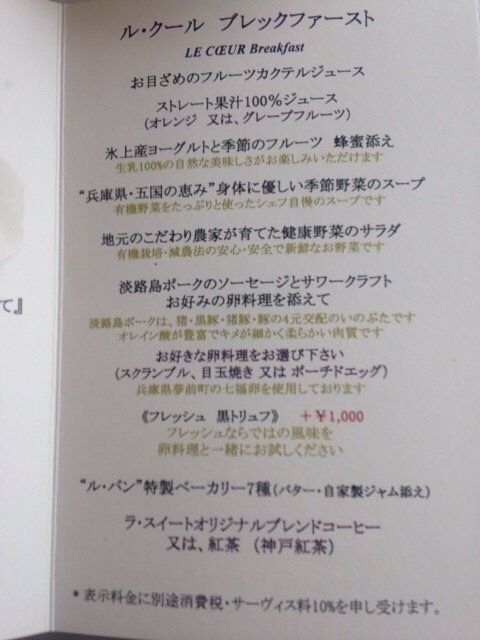 ル・クール ブレックファースト
LE CŒUR Breakfast
お目ざめのフルーツカクテルジュース
ストレート果汁100%ジュース
(オレンジ 又は、グレープフルーツ)
氷上産ヨーグルトと季節のフルーツ 蜂蜜添え
生乳100%の自然な美味しさがお楽しみいただけます
“兵庫県・五国の恵み”身体に優しい季節野菜のスープ
有機野菜をたっぷりと使ったシェフ自慢のスープです
地元のこだわり農家が育てた健康野菜のサラダ
有機栽培・減農法の安心・安全で新鮮なお野菜です
淡路島ポークのソーセージとサワークラフト
お好みの卵料理を添えて
淡路島ポークは、猪・黒豚・猪豚・豚の4元交配のいのぶたです
オレイン酸が豊富でキメが細かく柔らかい肉質です
お好きな卵料理をお選び下さい
(スクランブル、目玉焼き 又は ポーチドエッグ)
兵庫県夢前町の七福卵を使用しております
《フレッシュ 黒トリュフ》 +￥1,000
フレッシュならではの風味を
卵料理と一緒にお試しください
“ル・パン”特製ベーカリー7種(バター・自家製ジャム添え)
ラ・スイートオリジナルブレンドコーヒー
又は、紅茶 (神戸紅茶)
*表示料金に別途消費税・サーヴィス料10%を申し受けます。
て』